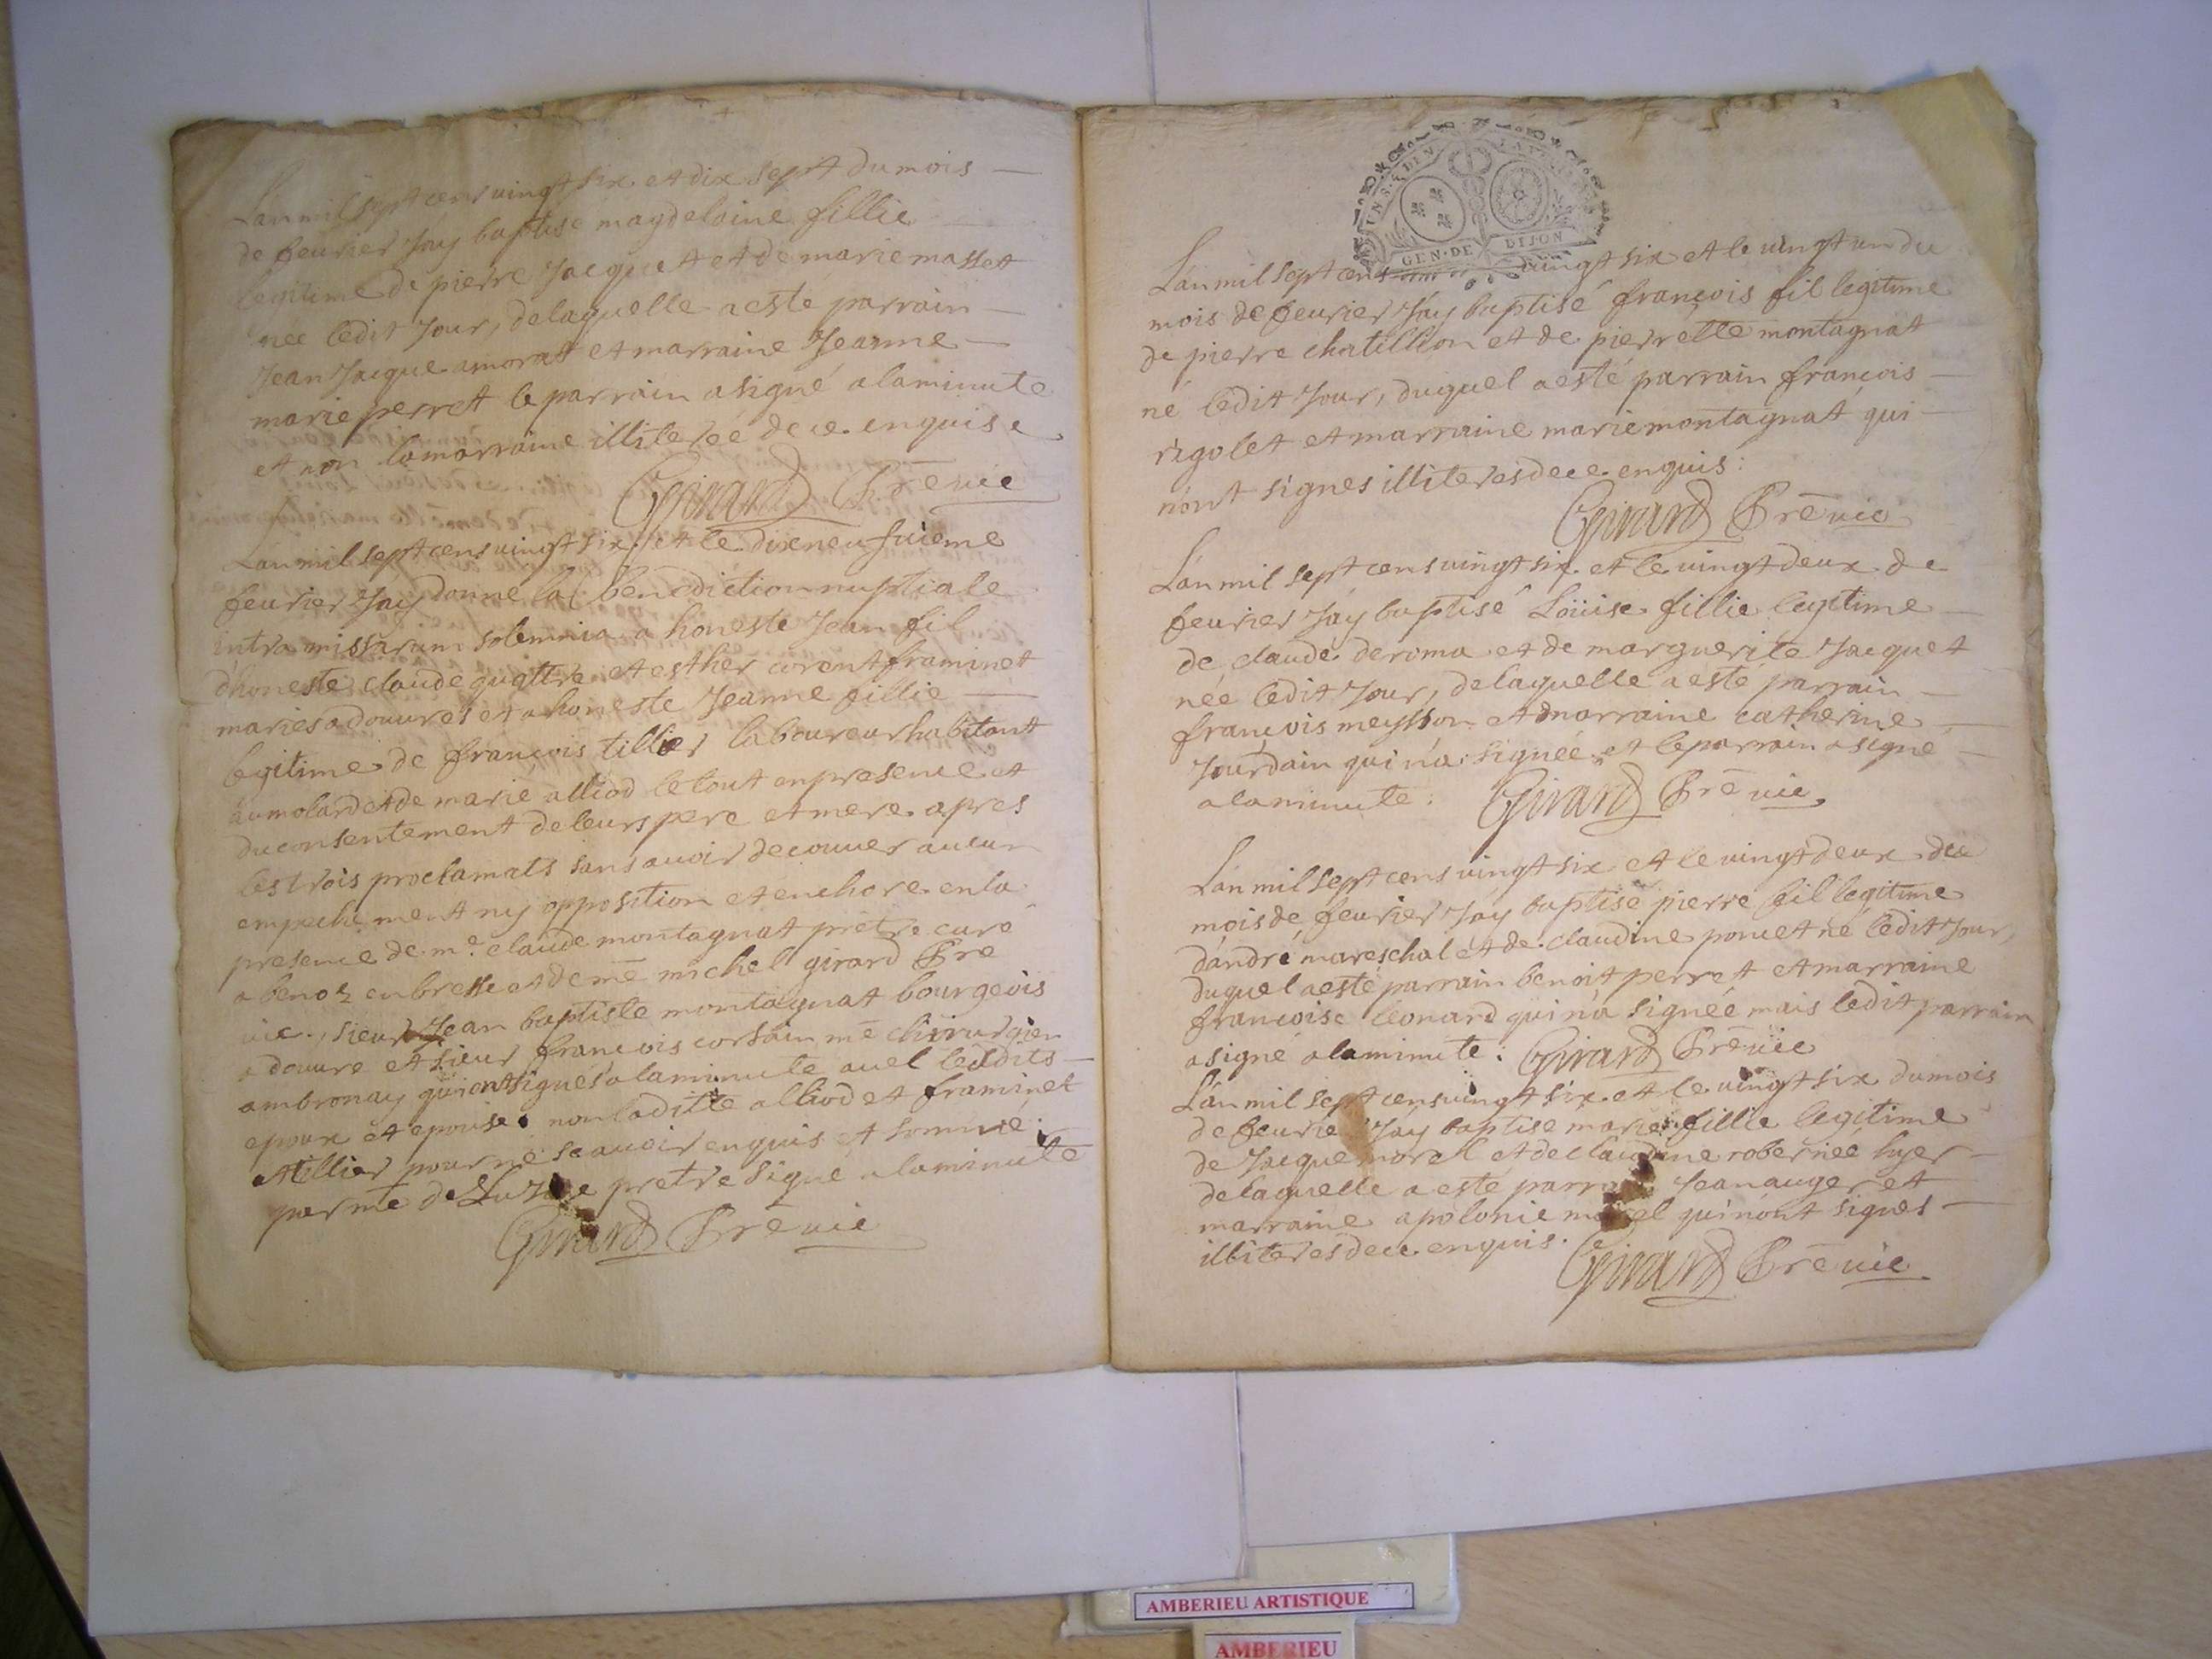 L'an mil sept cens vingt six et dix sept du mois
de feurier J'ay baptisé magdelaine fillie
legitime de pierre Jacquet et de marie masset
née ledit Jour, de laquelle a esté parrain
Jean Jacque amorat et marraine Jeanne
marie perret le parrain a signé a la minute
et non la marraine illiterée de ce enquise
Girard Pre vic
L'an mil sept cens vingt six et le dixneufuieme
feurier J'ay donné la benediction nuptiale
intra missarum solemnia a honeste Jean fil
d'honeste claude quattre et esther coront framinet
mariés a douures et a honeste Jeanne fillie
legitime de françois tillier laboureur habitant
au molard et de marie alliod le tout en presence et
du consentement de leurs pere et mere apres
les trois proclamats sans auoir decouuer aucun
empechement ny opposition et enchore en la
presence de me claude montagnat prêtre curé
a benoz en bresse et de me michel girard Pre
vic., sieur Jean baptiste montagnat bourgeois
a douure et sieur françois corsain me chirurgien
ambronay qui ont signés a la minute auel lesdits
epoux et epouise non laditte alliod et framinet
et tillier pour ne scauoir enquis et sommé
par me pretre signé a la minute
Girard Pre vic
GEN·DE DIJON
L'an mil sept cens vingt six et le vingt un du
mois de feurier J'ay baptisé françois fil legitime
de pierre chatillion et de pierrette montagnat
né ledit Jour, duquel a esté parrain françois
rigolet et marraine marie montagnat qui
n'ont signes illiteres de ce enquis:
Girard Pre vic
L'an mil sept cens vingt six et le vingt deux de
feurier J'ay baptisé Loüise fillie legitime
de claude deroma et de marguerite Jacquet
née ledit Jour, de laquelle a esté parrain
françois meysson et marraine catherine
Jourdain qui n'a signée et le parrain a signé
a la minute: Girard Pre vic
L'an mil sept cens vingt six et le vingt deux du
mois de feurier J'ay baptisé pierre fil legitime
d'andré mareschal et de claudine poncet né ledit Jour,
duquel a esté parrain benoit perret et marraine
françoise leonard qui n'a signée mais ledit parrain
a signé a la minute: Girard Pre vic
L'an mil sept cens vingt six et le vingt six du mois
de feurier J'ay baptisé marie fillie legitime
de Jacque morel et de claudine rober née hyer
de laquelle a esté parrain Jean auger et
marraine apolonie morel qui n'ont signés
illiteres de ce enquis.
Girard Pre vic
AMBERIEU ARTISTIQUE
AMBERIEU